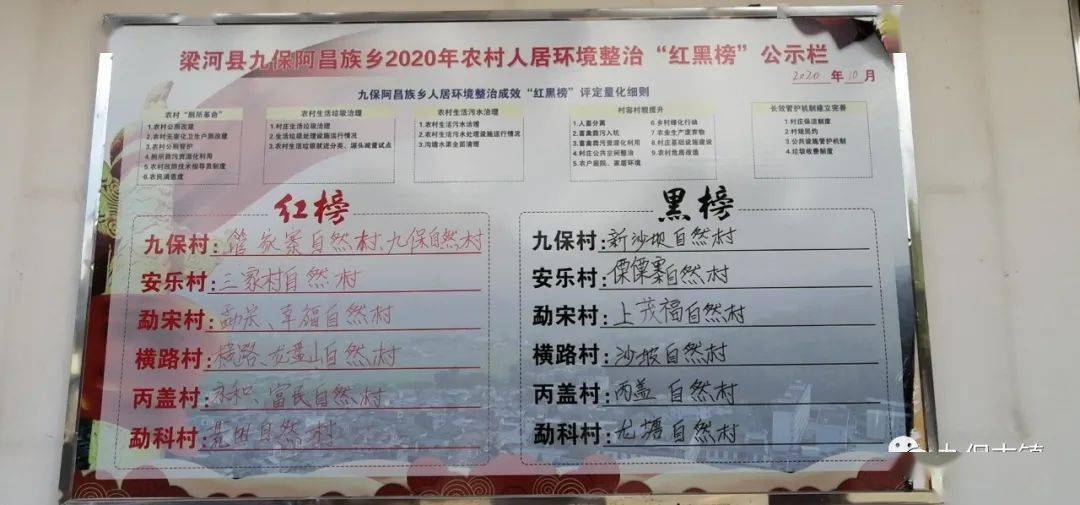 梁河县九保阿昌族乡2020年农村人居环境整治“红黑榜”公示栏
2020 年 10 月
九保阿昌族乡人居环境整治成效“红黑榜”评定量化细则
农村“厕所革命”
1.农村公厕改建
2.农村无害化卫生户厕改建
3.农村公厕管护
4.厕所粪污资源化利用
5.农村改厕技术指导员制度
6.农民满意度
农村生活垃圾治理
1.村庄生活垃圾治理
2.生活垃圾处理设施运行情况
3.农村生活垃圾就近分类、源头减量试点
农村生活污水治理
1.农村生活污水治理
2.农村生活污水处理设施运行情况
3.沟塘水渠全面清理
村容村貌提升
1.人畜分离
2.畜禽粪污入坑
3.畜禽粪污资源化利用
4.村庄公共空间整治
5.农户庭院、家居环境
6.乡村绿化行动
7.农业生产废弃物
8.村庄基础设施建设
9.农村危房改造
长效管护机制建立完善
1.村庄保洁制度
2.村规民约
3.公共设施管护机制
4.垃圾收费制度
红榜
九保村:管家寨自然村、九保自然村
安乐村:三家村自然村
勐宋村:勐宋、幸福自然村
横路村:横路、龙盖山自然村
丙盖村:永和、富民自然村
勐科村:自然村
黑榜
九保村:新沙坝自然村
安乐村:傈僳寨自然村
勐宋村:上茂福自然村
横路村:沙坡自然村
丙盖村:丙盖 自然村
勐科村:龙塘自然村